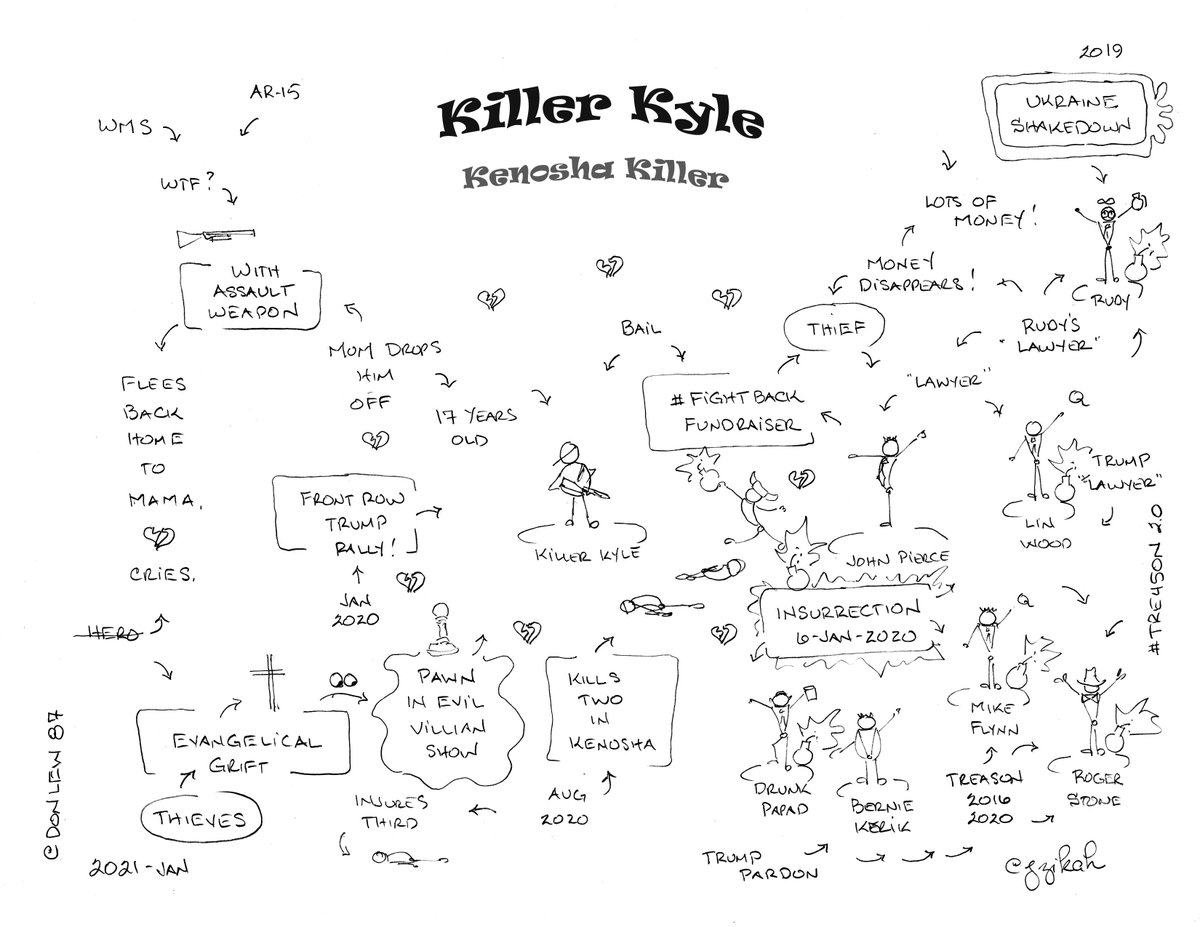 Killer Kyle
Kenosha Killer
2019
UKRAINE
SHAKEDOWN
AR-15
WMS
WTF?
WITH
ASSAULT
WEAPON
LOTS OF
MONEY!
MONEY
DISAPPEARS!
RUDY
THIEF
RUDY'S
"LAWYER"
BAIL
MOM DROPS
HIM
OFF
17 YEARS
OLD
FLEES
BACK
HOME
TO
MAMA.
CRIES.
HERO
#FIGHTBACK
FUNDRAISER
"LAWYER"
Q
TRUMP
"LAWYER"
LIN
WOOD
#TRE45ON 2.0
FRONT ROW
TRUMP
RALLY!
JAN
2020
KILLER KYLE
JOHN PIERCE
INSURRECTION
6-JAN-2020
Q
MIKE
FLYNN
ROGER
STONE
TREASON
2016
2020
PAWN
IN EVIL
VILLIAN
SHOW
KILLS
TWO
IN
KENOSHA
AUG
2020
INJURES
THIRD
EVANGELICAL
GRIFT
THIEVES
DRUNK
PAPAD
BERNIE
KERIK
TRUMP
PARDON
©DONLEW87
2021-JAN